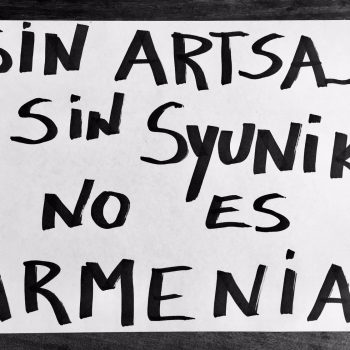 SIN ARTSA
SIN SYUNIK
NO ES
ARMENIA